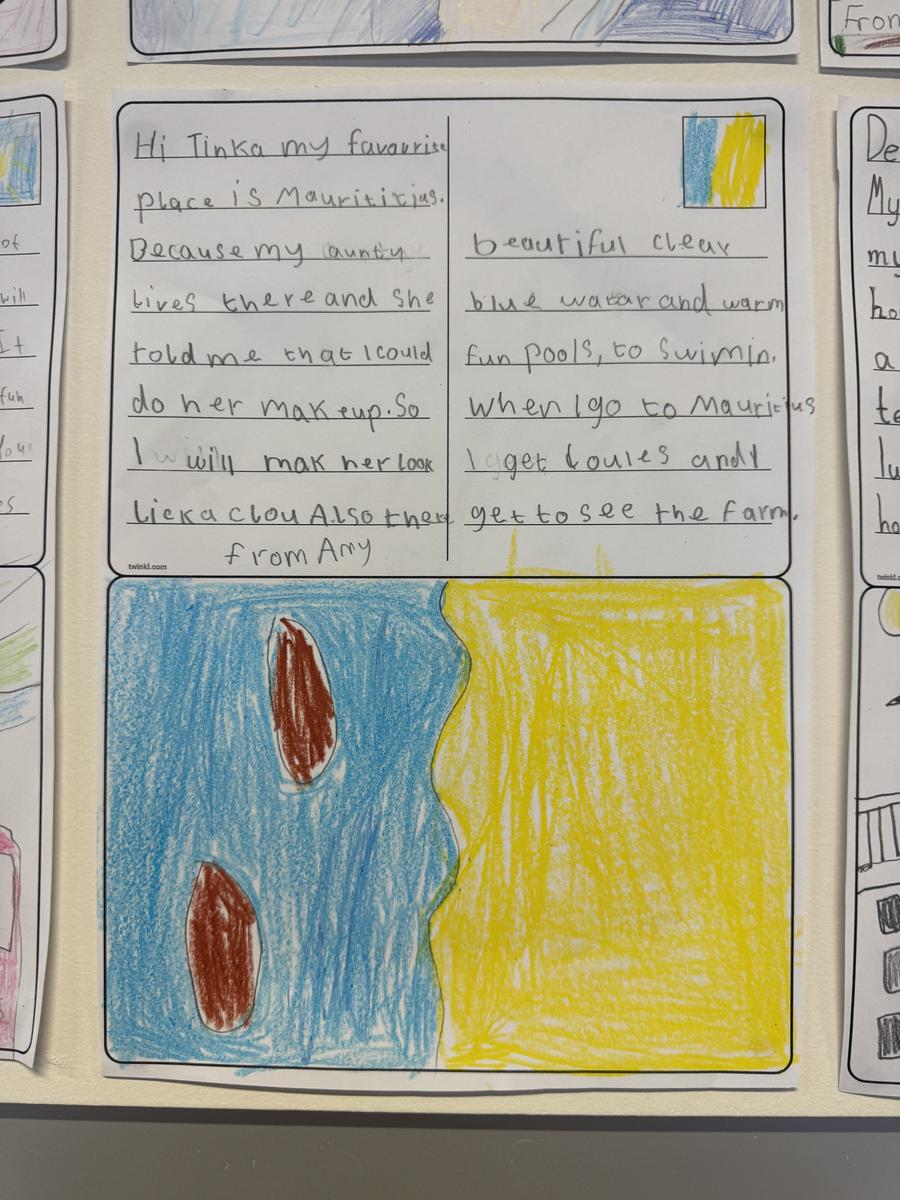 Hi Tinka my favourite
place is Maurititius.
Because my aunty
lives there and she
told me that I could
do her mak eup. So
I will mak her look
lieka clou Also there
from Amy
twinkl.com
beautiful clear
blue watar and warm
fun pools, to Swimin.
When I go to Mauritius
I get louies and I
get to see the farm.
From
of
will
It
fun
You
es
De
My
my
ho
a
te
lu
ho
twinkl.c